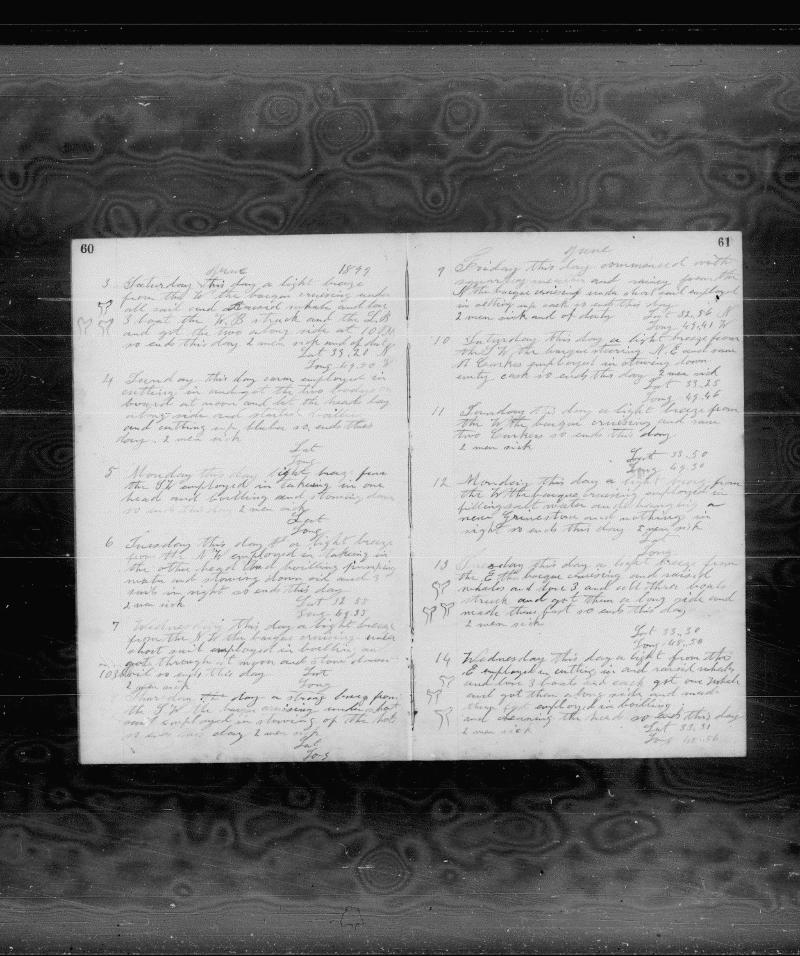 60
June 1899
3 Saturday this day a light breeze
from the W the barque cruising under
all sail and Raised whales and low
3 boats the W. B struck and the L B
and got the two along side at 10 PM
so ends this day 2 men sick and of duty
Lat 33.20 N
Long 49.50 W
4 Sunday this day earn employed in
cutting in and got the two bodies on
board at noon and let the heads lay
along side and started boiling
and cutting up blubber so ends this
day. 2 men sick
Lat
Long
5 Monday this day light breeze from
the SW employed in takeing in one
head and boilling and stowing down
so ends this day 2 men sick
Lat
Long
6 Tuesday this day a light breeze
from the N W employed in takeing in
the other head and boilling pumping
mate and stowing down oil and 3
sails in sight so ends this day
2 men sick Lat 32.55
Long 49.33
7 Wednesday this day a light breeze
from the N W the barque cruising under
short sail employed in boilling and
got through at noon and stone down
103 oil so ends this day Lat
2 men sick Long
Thursday this day a strong breeze from
the S W the barque cruising under short
sail employed in stowing of the hold
so ends this day 2 men sick
Lat
Long
61
June
9 Friday this day commenced with
squarley weather and rainey from the
N the barque cruising under short sail employed
in setting up cask so ends this day
2 men sick and of duty Lat 32.56 N
Long 49.41 W
10 Saturday this day a light breeze from
the S W the barque steering N. E and saw
employed in stowing down
emty cask so ends this day 2 men sick
Lat 33.25
Long 49.46
11 Sunday this day a light breeze from
the W the barque cruising and saw
two so ends this day
2 men sick
Lat 33.50
Long 49.30
12 Monday this day a light breeze from
the W the barque cruising employed in
filling salt water and hanging a
new Grinestone and nothing in
sight so ends this day 2 men sick
Lat
Long
13 Tuesday this day a light breeze from
the E the barque cruising and raised
whales and lore 3 and all three boats
struck and got them a long side and
made them fast so ends this day
2 men sick
Lat 33.30
Long 48.50
14 Wednesday this day a light from the
E employed in cutting in and raised whales
and lore 3 boats and each got one whale
and got them along side and made
them fast employed in boilling
and cleaning the head so ends this day
2 men sick Lat 33.31
Long 48.56